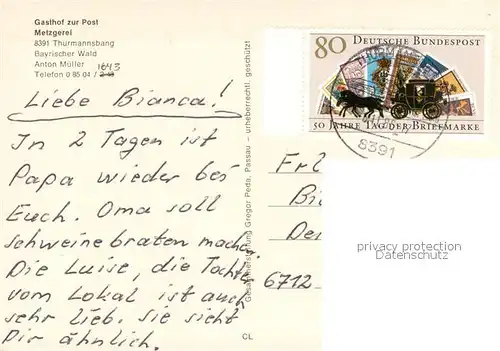 Gasthof zur Post
Metzgerei
8391 Thurmannsbang
Bayrischer Wald
Anton Müller
Telefon 0 85 04 / 1643
Liebe Bianca!
In 2 Tagen ist
Papa wieder bei
Euch. Oma soll
schweinebraten machen.
Die Luise, die Tochter
vom Lokal ist auch
sehr lieb. sie sieht
Dir ähnlich.
CL
Gesamtherstellung Gregor Peda, Passau – urheberrechtl. geschützt
80 DEUTSCHE BUNDESPOST
50 JAHRE TAG DER BRIEFMARKE
8391
Frl
6712
privacy protection
Datenschutz